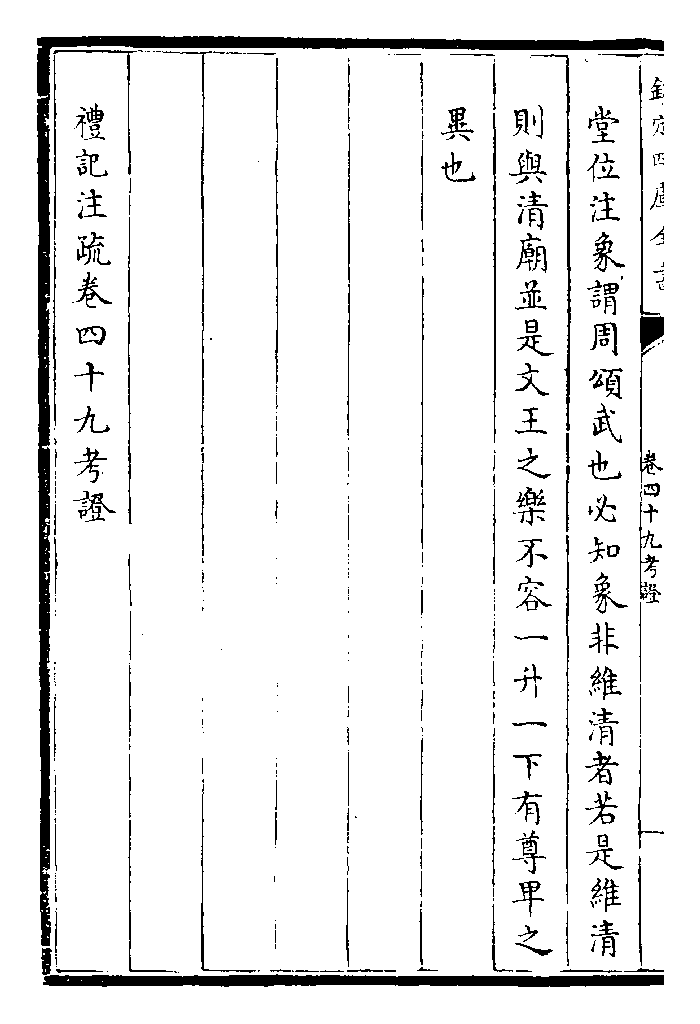 欽定四庫全書
卷四十九考證
堂位注象謂周頌武也必知象非維清者若是維清
則與清廟並是文王之樂不容一升一下有尊卑之
異也
禮記注疏卷四十九考證